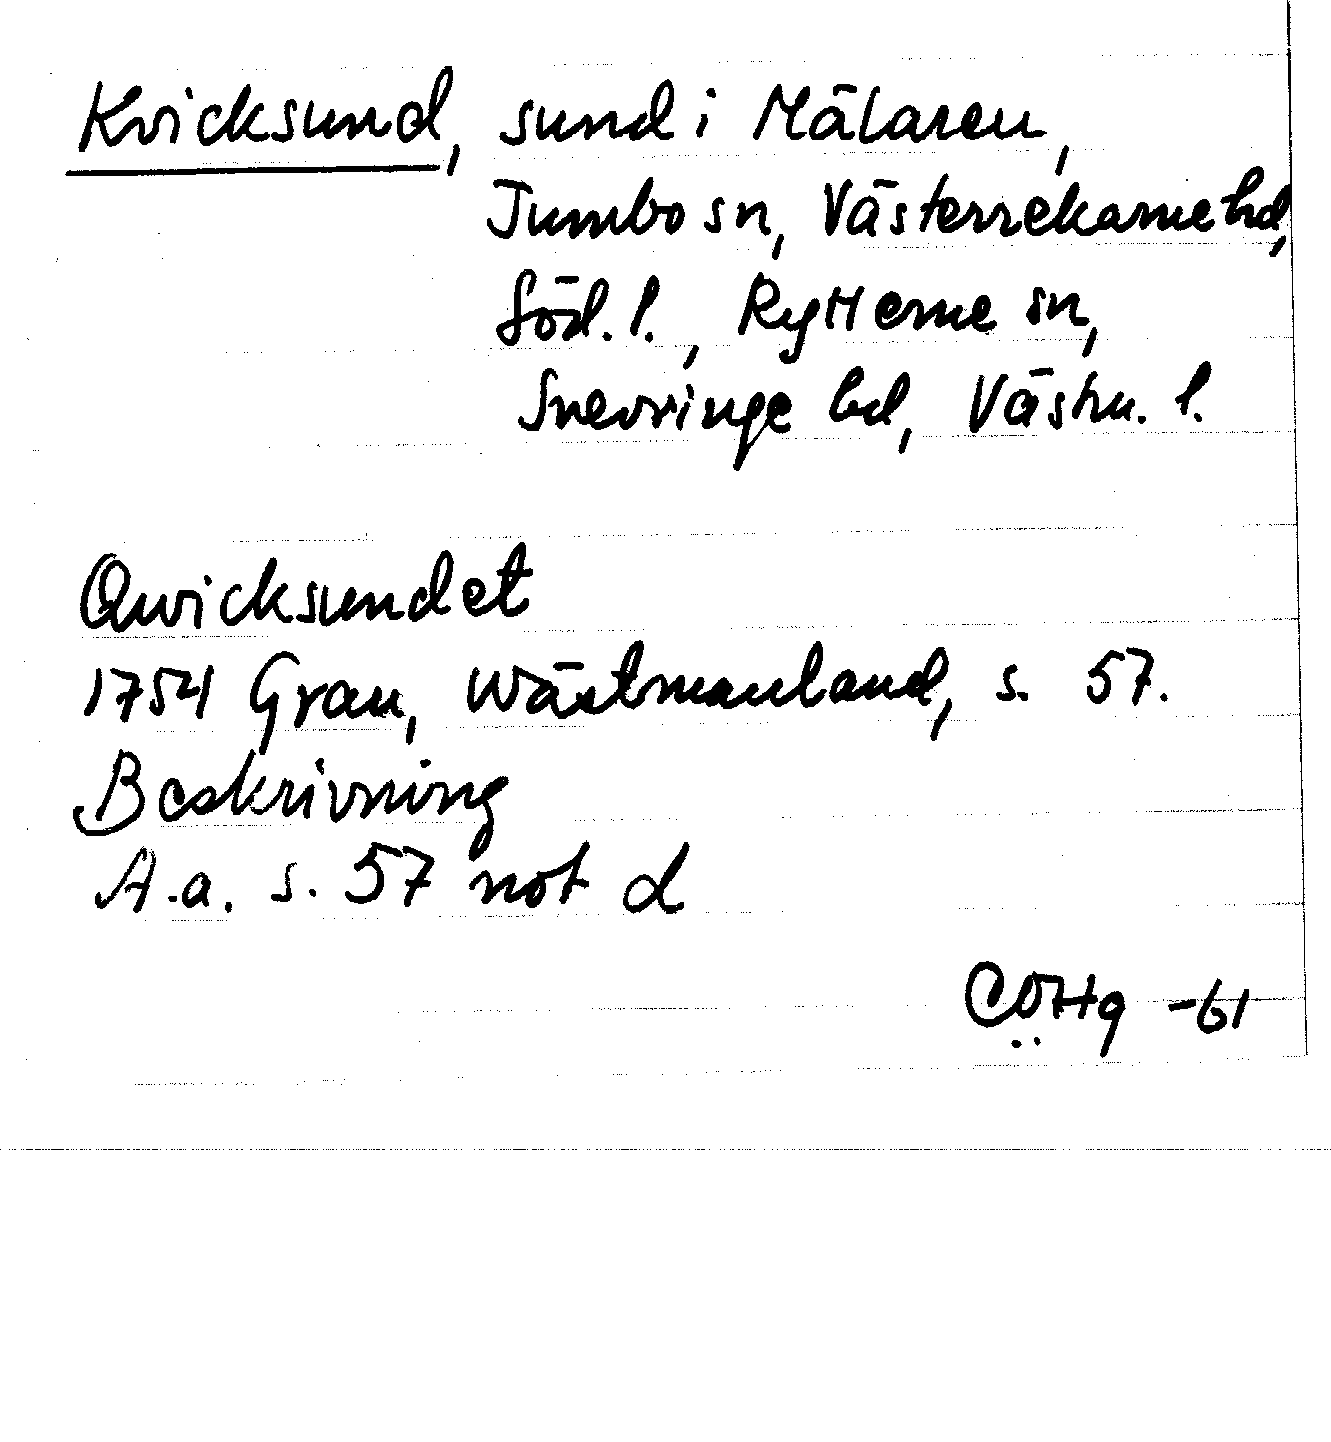 Kvicksund, sund i Mälaren,
Tumbo sn, Västerrekarne hd,
Söd. l., Rytterne sn,
Snevringe hd, Västm. l.
Qwicksundet
1754 Grau, Wästmanland, s. 57.
Beskrivning
A.a. s. 57 not d
CÖHg -61